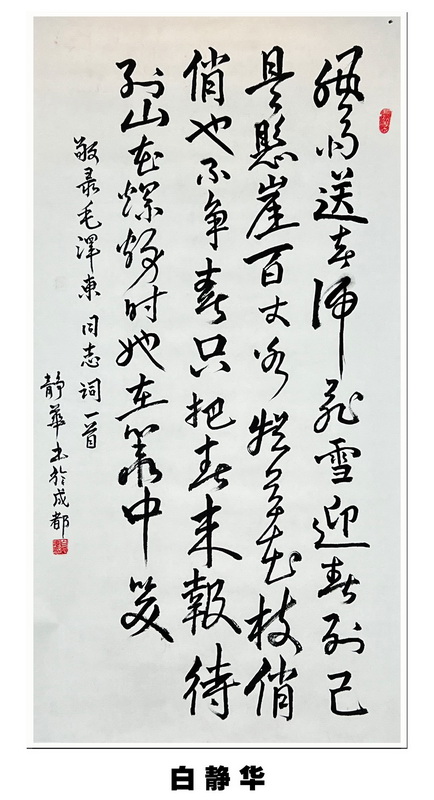 風雨送春歸飛雪迎春到已
是懸崖百丈冰犹有花枝俏
俏也不争春只把春来報待
到山花爛漫时她在叢中笑
敬录毛澤東同志词一首
静華书於成都
白静华